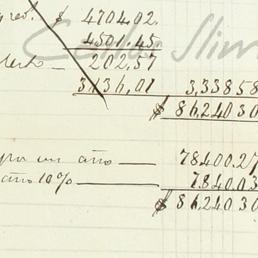 $ 4704.02.
4501.45
202.57
3.136,01 3,33858
$ 8624030
por un año — 78400.27
año 10% — 784003
$ 8624030